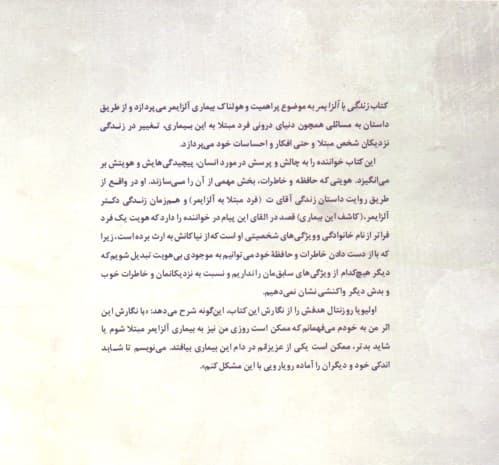 کتاب زندگی با آلزایمر به موضوع پراهمیت و هولناک بیماری آلزایمر می‌پردازد و از طریق
داستان به مسائلی همچون دنیای درونی فرد مبتلا به این بیماری، تغییر در زندگی
نزدیکان شخص مبتلا و حتی افکار و احساسات خود می‌پردازد.
این کتاب خواننده را به چالش و پرسش در مورد انسان، پیچیدگی‌هایش و هویتش بر
می‌انگیزد. هویتی که حافظه و خاطرات، بخش مهمی از آن را می‌سازند. او در واقع از
طریق روایت داستان زندگی آقای ت (فرد مبتلا به آلزایمر) و هم‌زمان زندگی دکتر
آلزایمر، (کاشف این بیماری) قصد در القای این پیام در خواننده را دارد که هویت یک فرد
فراتر از نام خانوادگی و ویژگی‌های شخصیتی او است که از نیاکانش به ارث برده است، زیرا
که با از دست دادن خاطرات و حافظهٔ خود می‌توانیم به موجودی بی‌هویت تبدیل شویم که
دیگر هیچ‌کدام از ویژگی‌های سابق‌مان را نداریم و نسبت به نزدیکانمان و خاطرات خوب
و بدش دیگر واکنشی نشان نمی‌دهیم.
اولیویا روزنتال هدفش را از نگارش این کتاب، این‌گونه شرح می‌دهد: «با نگارش این
اثر من به خودم می‌فهمانم که ممکن است روزی من نیز به بیماری آلزایمر مبتلا شوم یا
شاید بدتر، ممکن است یکی از عزیزانم در دام این بیماری بیافتد. می‌نویسم تا شاید
اندکی خود و دیگران را آماده رویارویی با این مشکل کنم».